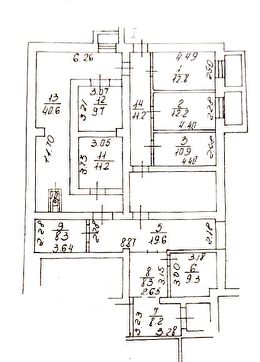 6.26
4.49
1
12.8
2.80
13
40.6
3.07
12
9.7
3.21
14
11.2
2
12.2
2.28
4.40
3
10.9
2.28
4.40
3.05
11
11.2
3.73
9
8.3
2.28
3.64
2.28
5
19.6
8.87
2.18
8
8.3
2.65
3.15
3.18
6
9.3
3.00
7
8.2
3.23
3.28